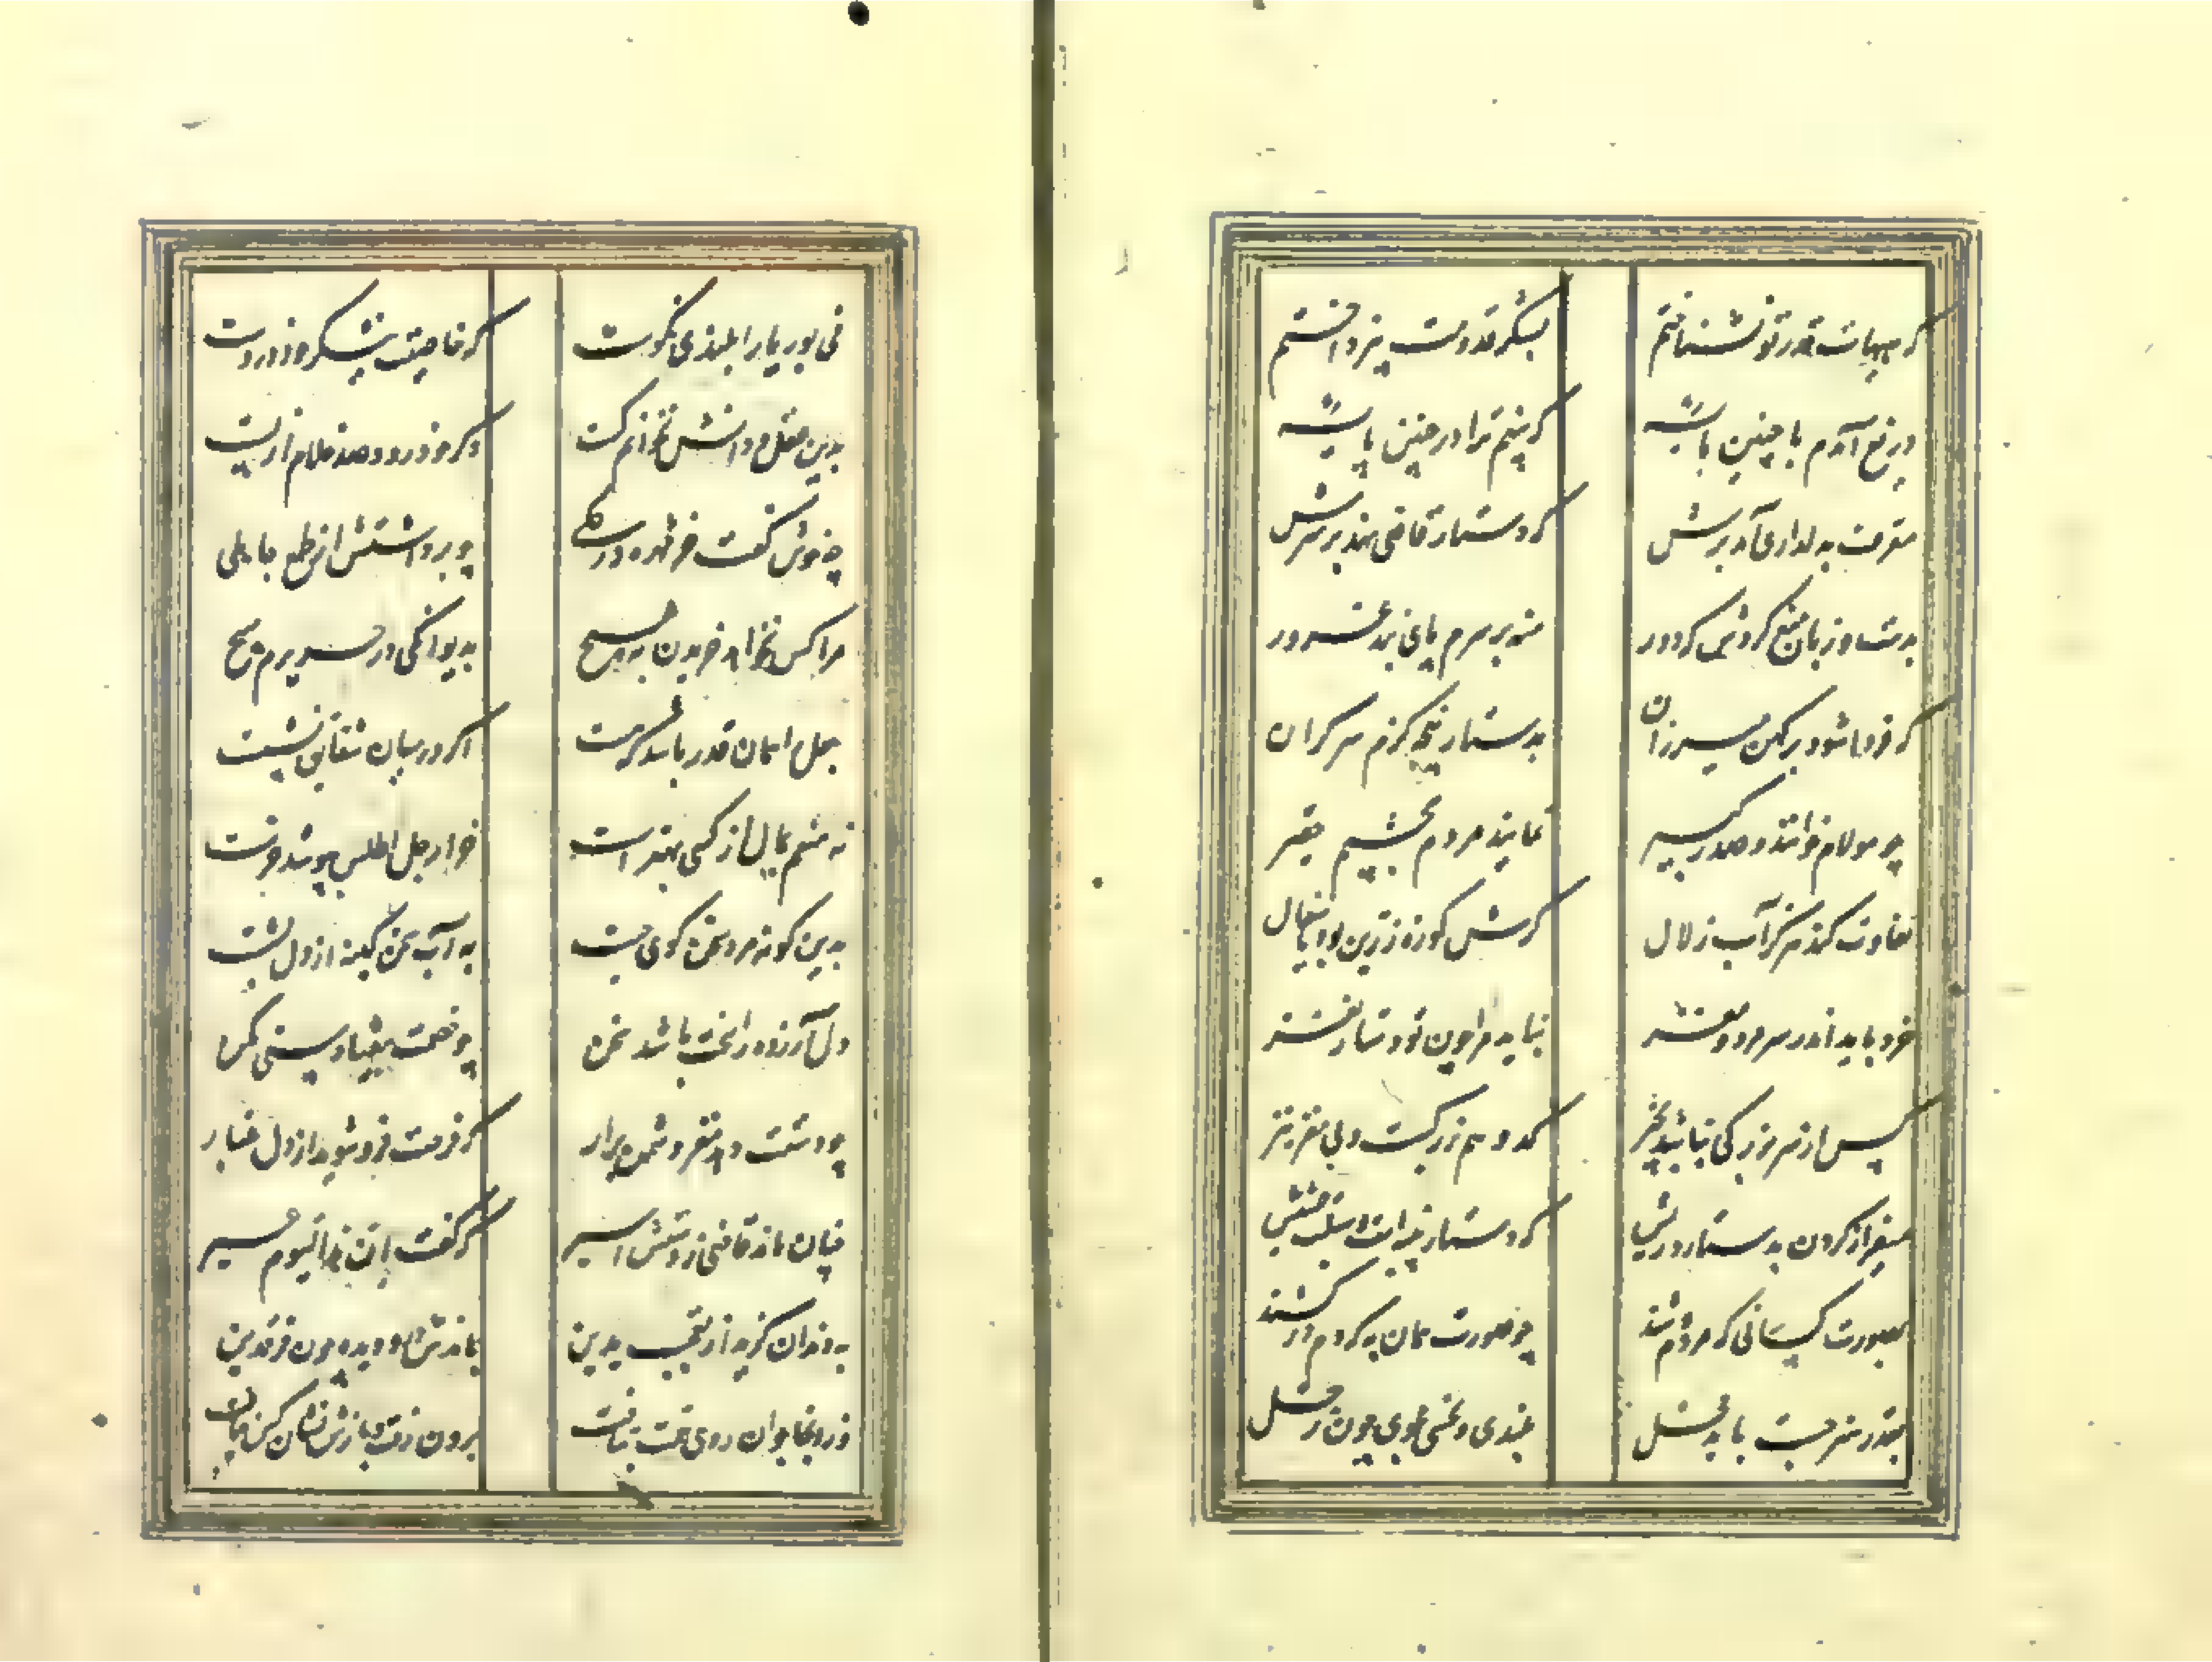 که هیهات قدر تو نشناختم بشکر قدومت نپرداختم
دریغ آیدم با چنین پایه که بینم ترا در چنین پایه
معرف به دلداری آمد برش که دستار قاضی نهد بر سرش
بدست و زبان منع کردش که دور منه بر سرم پای بند غرور
که فردا شود بر کهن میزران به دستار پنجه گزم سر گران
چو مولام خوانند و صدر کبیر نمایند مردم بچشمم حقیر
تفاوت کند هرگز آب زلال گرش کوزه زرین بود یا سفال
خرد باید اندر سر مرد و مغز نباید مرا چون تو دستار نغز
کس از سر بزرگی نباشد بچیز کدو سر بزرگست و بی مغز نیز
میفراز گردن به دستار و ریش که دستار پنبه است و سبلت حشیش
بصورت کسانی که مردم وشند چو صورت همان به که دم درکشند
بقدر هنر جست باید محل بلندی و نحسی مجوی چون زحل
نی بوریا را بلندی نکوست که خاصیت نیشکر خود دروست
بدین عقل و دانش نخوانم کست وگر میرود صد غلام از پست
چه خوش گفت خرمهره در گلی چو برداشتش از طمع جاهلی
مرا کس نخواهد خریدن به هیچ به دیوانگی در حریرم مپیچ
جعل را همان قدر باشد که هست اگر در میان شقایق نشست
نه منعم بمال از کسی بهتر است خر ار جل اطلس بپوشد خر است
بدین گونه مرد سخن گوی چست به آب سخن کینه از دل بشست
دل آزرده را سخت باشد سخن چو خصمت بیفتاد سستی مکن
چو دستت دهد مغز دشمن برآر که فرصت فروشوید از دل غبار
چنان ماند قاضی ز دستش اسیر که گفت ان هذا لیوم عسیر
به دندان گزید از تعجب یدین بماندش در او دیده چون فرقدین
وز آنجا جوان روی همت بتافت برون رفت و بازش نشان کس نیافت